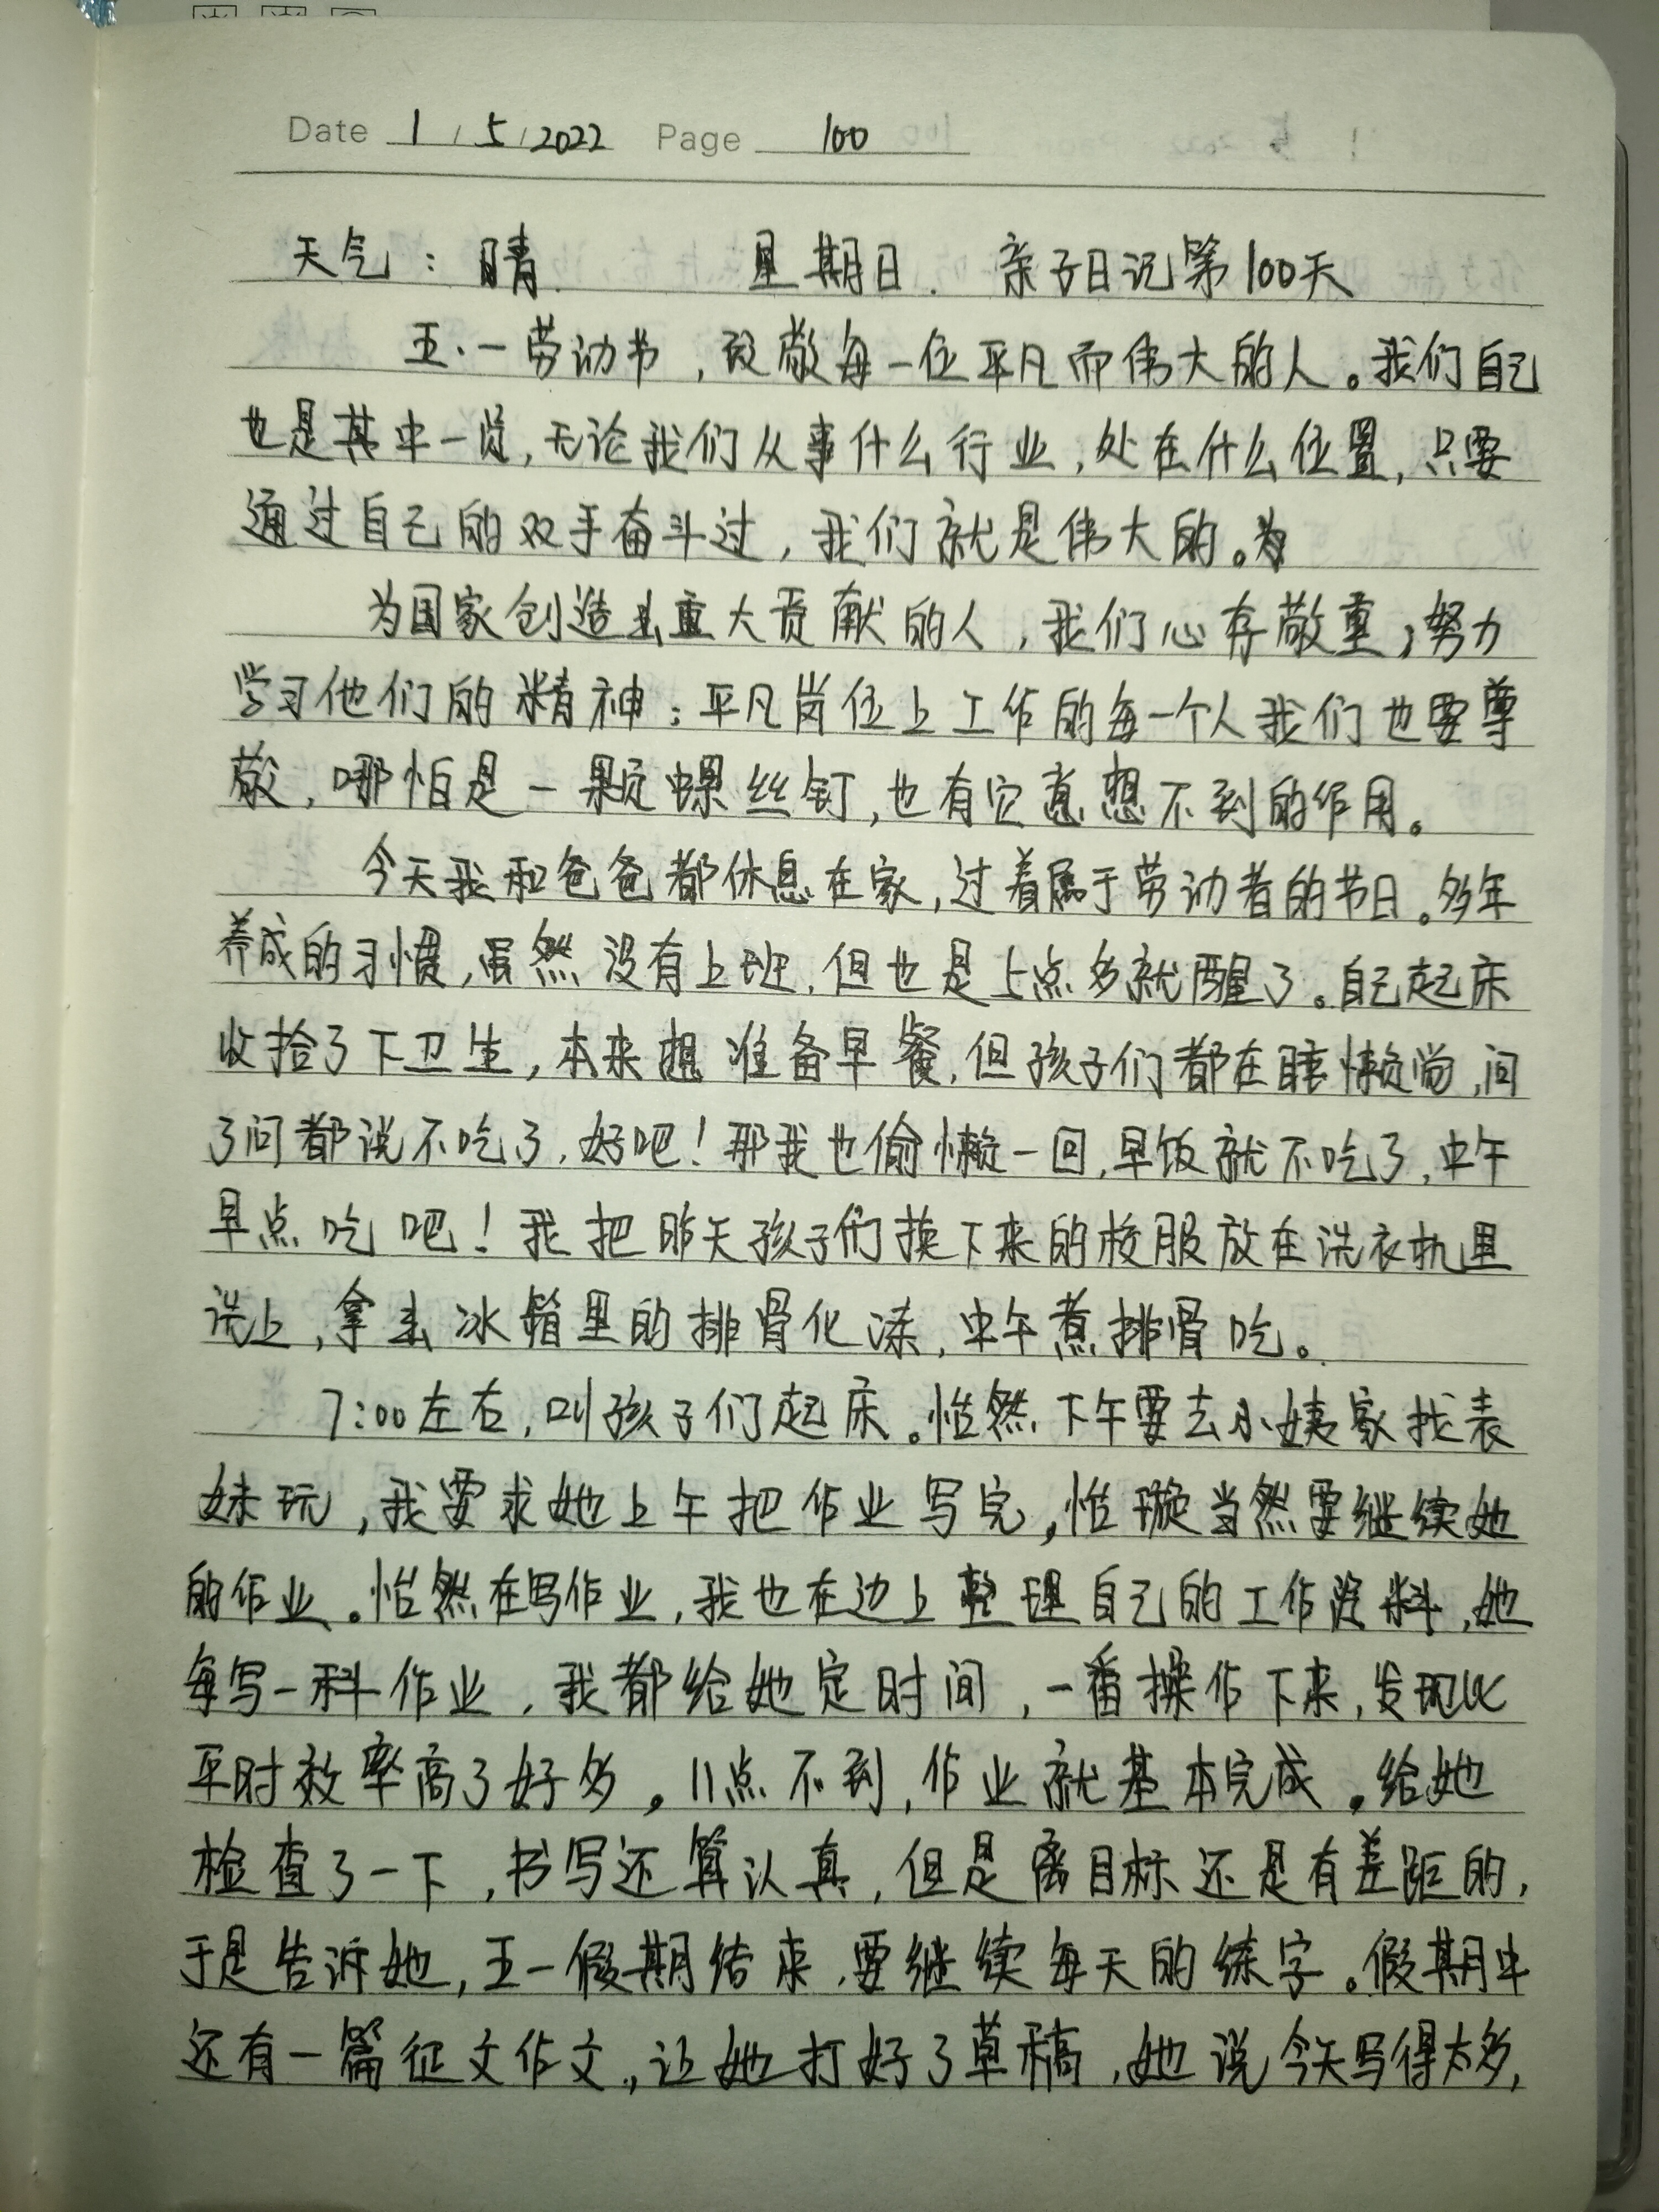 Date 1 / 5 / 2022 Page 100
天气：晴. 星期日. 亲子日记第100天
五·一劳动节，致敬每一位平凡而伟大的人。我们自己
也是其中一员，无论我们从事什么行业，处在什么位置，只要
通过自己的双手奋斗过，我们就是伟大的。为
为国家创造出重大贡献的人，我们心存敬重，努力
学习他们的精神；平凡岗位上工作的每一个人我们也要尊
敬，哪怕是一颗螺丝钉，也有它意想不到的作用。
今天我和爸爸都休息在家，过着属于劳动者的节日。多年
养成的习惯，虽然没有上班，但也是5点多就醒了。自己起床
收拾了下卫生，本来想准备早餐，但孩子们都在睡懒觉，问
了问都说不吃了，好吧！那我也偷懒一回，早饭就不吃了，中午
早点吃吧！我把昨天孩子们换下来的校服放在洗衣机里
洗上，拿出冰箱里的排骨化冻，中午煮排骨吃。
7:00左右，叫孩子们起床。怡然下午要去小姨家找表
妹玩，我要求她上午把作业写完，怡璇当然要继续她
的作业。怡然在写作业，我也在边上整理自己的工作资料，她
每写一科作业，我都给她定时间，一番操作下来，发现比
平时效率高了好多。11点不到，作业就基本完成。给她
检查了一下，书写还算认真，但是离目标还是有差距的，
于是告诉她，五一假期结束，要继续每天的练字。假期中
还有一篇征文作文，让她打好了草稿，她说今天写得太多，